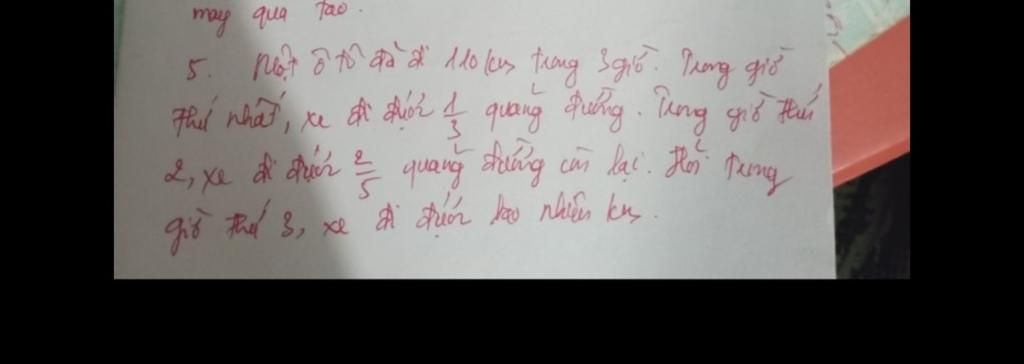 may quả táo.
5. Một ô tô đã đi 110 km trong 3 giờ. Trong giờ
thứ nhất, xe đi được 1/3 quãng đường. Trong giờ thứ
2, xe đi được 2/5 quãng đường còn lại. Hỏi trong
giờ thứ 3, xe đi được bao nhiêu km.